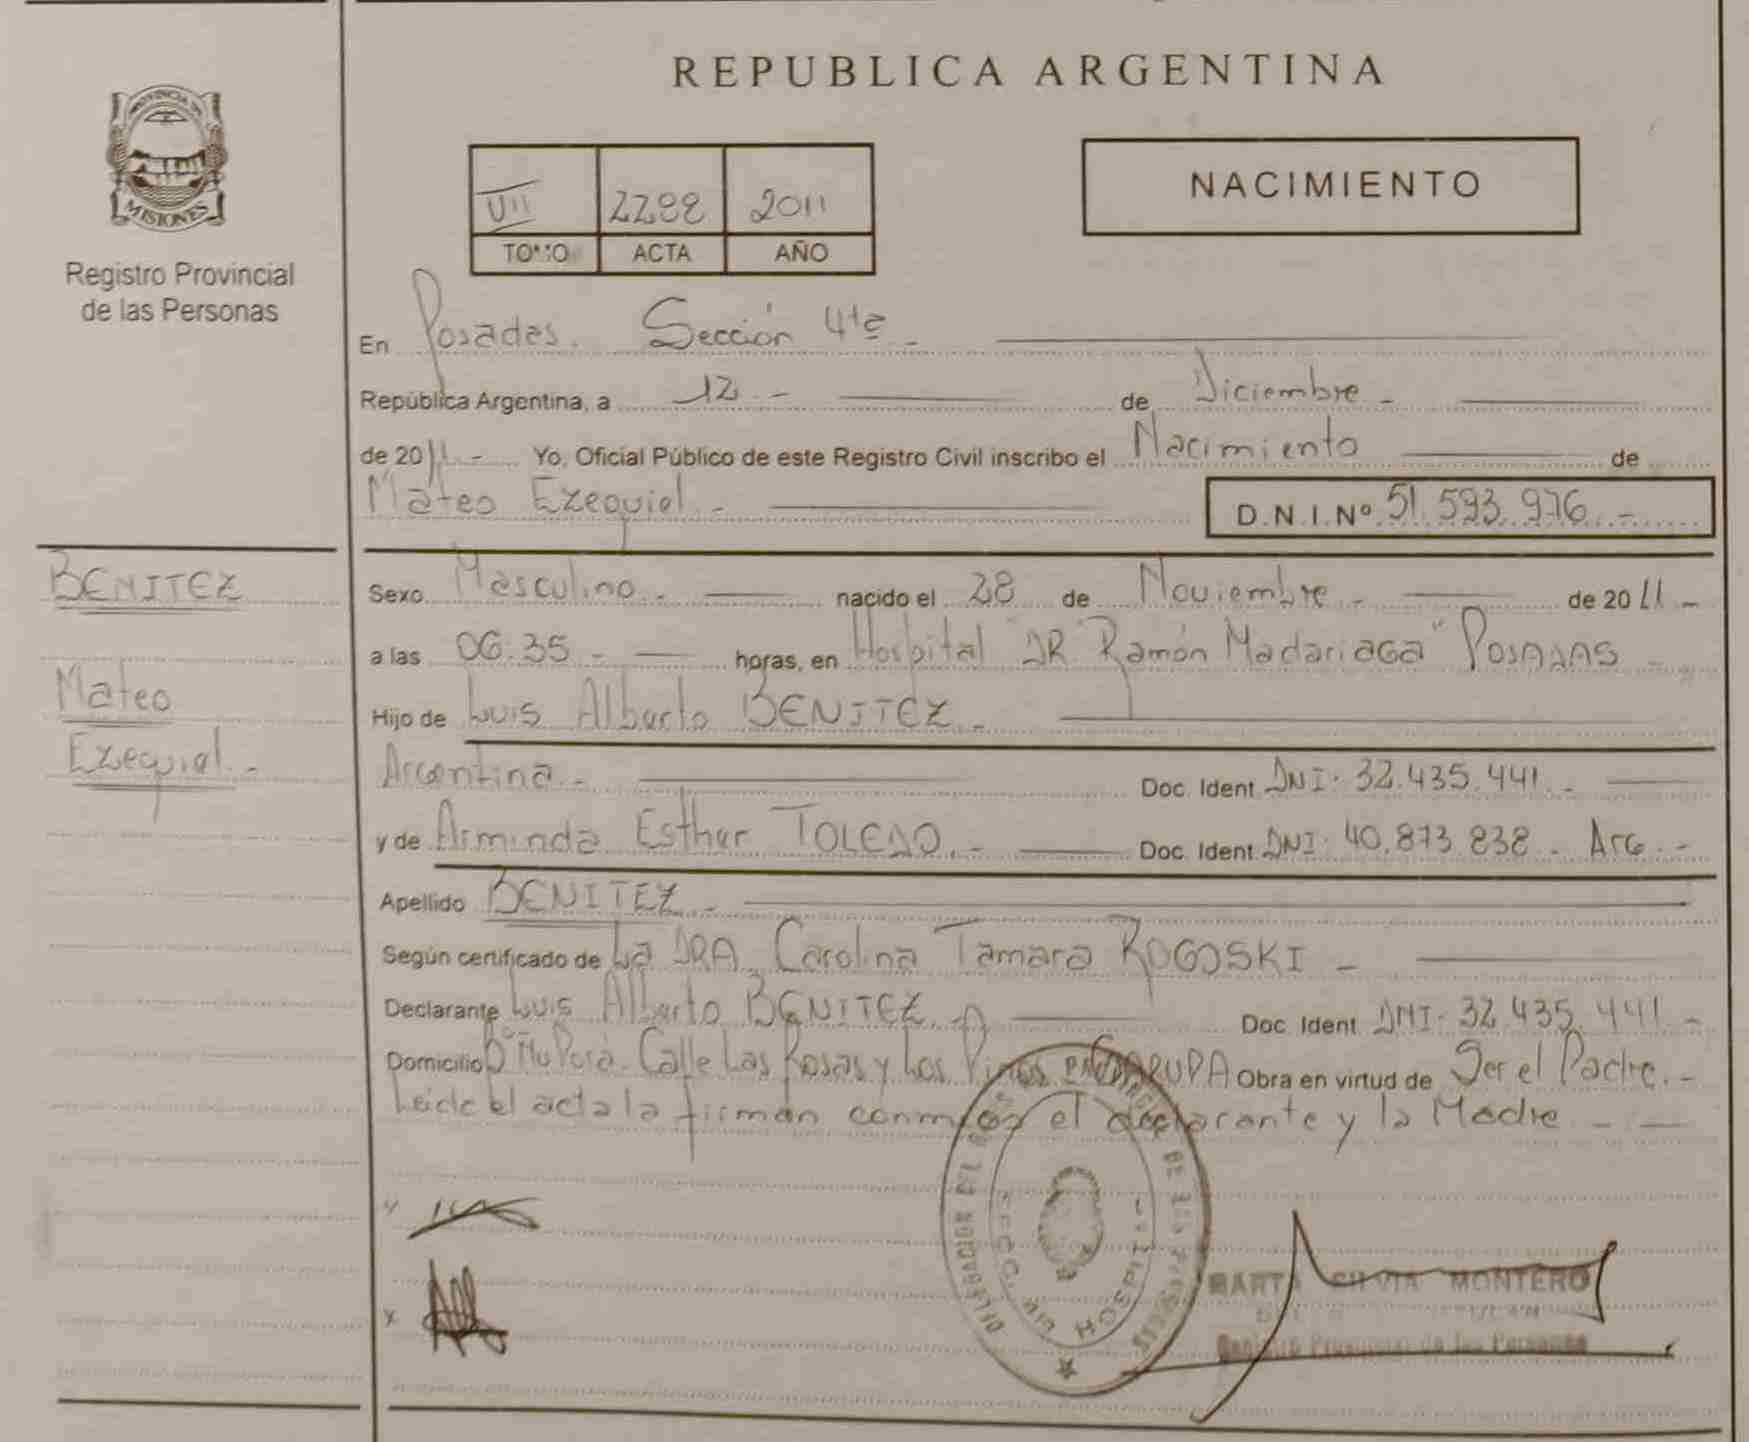 REPUBLICA ARGENTINA
PROVINCIA DE
MISIONES
Registro Provincial
de las Personas
VII 2288 2011
TOMO ACTA AÑO
NACIMIENTO
En Posadas. Sección 4ta -
República Argentina, a 12 - de Diciembre -
de 2011 - Yo, Oficial Público de este Registro Civil inscribo el Nacimiento de
Mateo Ezequiel - D.N.I.Nº 51.593.976 -
BENITEZ
Mateo
Ezequiel -
Sexo Masculino - nacido el 28 de Noviembre - de 2011 -
a las 06.35 - horas, en Hospital "DR Ramón Madariaga" Posadas
Hijo de Luis Alberto BENITEZ -
Argentina - Doc. Ident. DNI. 32.435.441 -
y de Arminda Esther TOLEDO. - Doc. Ident. DNI. 40.873.838 - Arg. -
Apellido BENITEZ -
Según certificado de La DRA. Carolina Tamara ROGOSKI -
Declarante Luis Alberto BENITEZ. - Doc. Ident. DNI. 32.435.441 -
Domicilio Bº Ñu Porá. Calle Las Rosas y Los Pinos en GARUPA Obra en virtud de Ser el Padre. -
Leide el acta la firman conmigo el declarante y la Madre -
DELEGACION DEL DE LAS PERSONAS
HOSPITAL
x
MARTA SILVIA MONTERO
Registro Provincial de las Personas